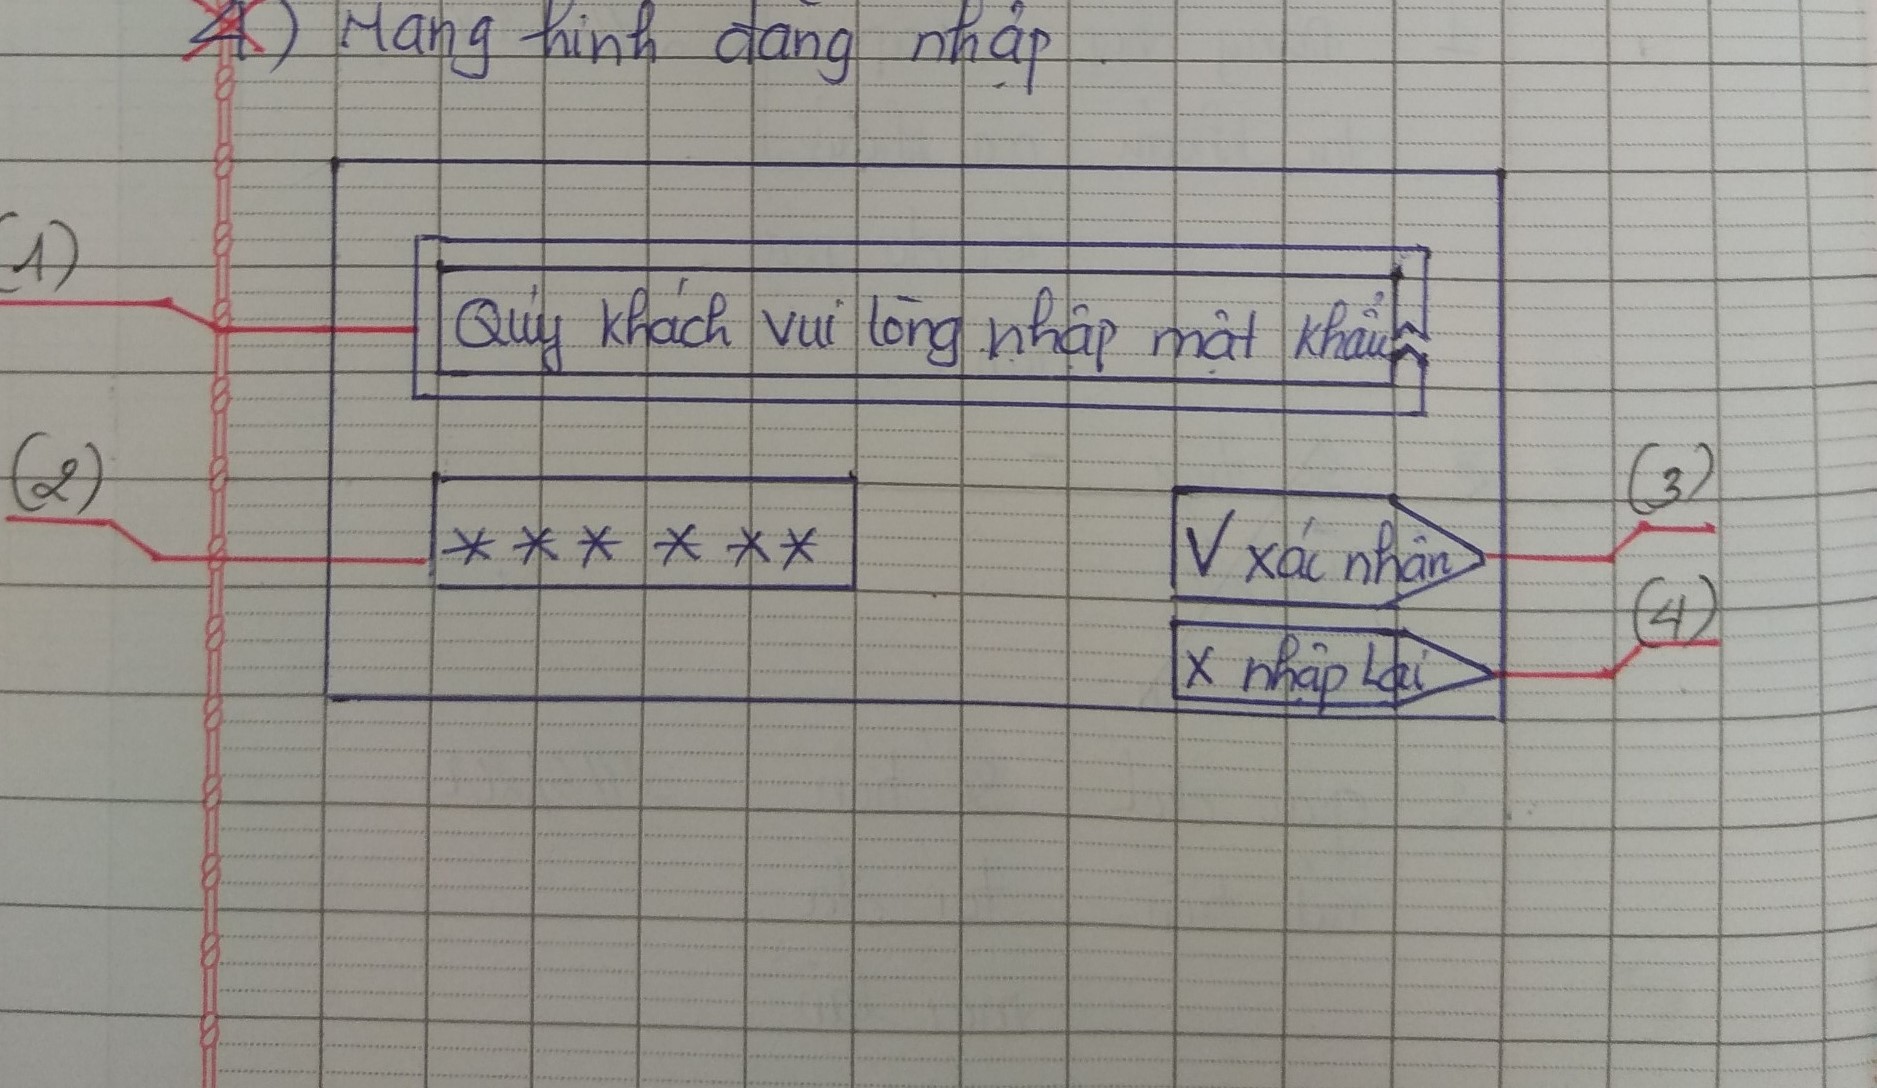 4) Màng hình đăng nhập
(1)
Qúy khách vui lòng nhập mật khẩu
(2)
* * * * * *
V xác nhận
(3)
X nhập Lại
(4)